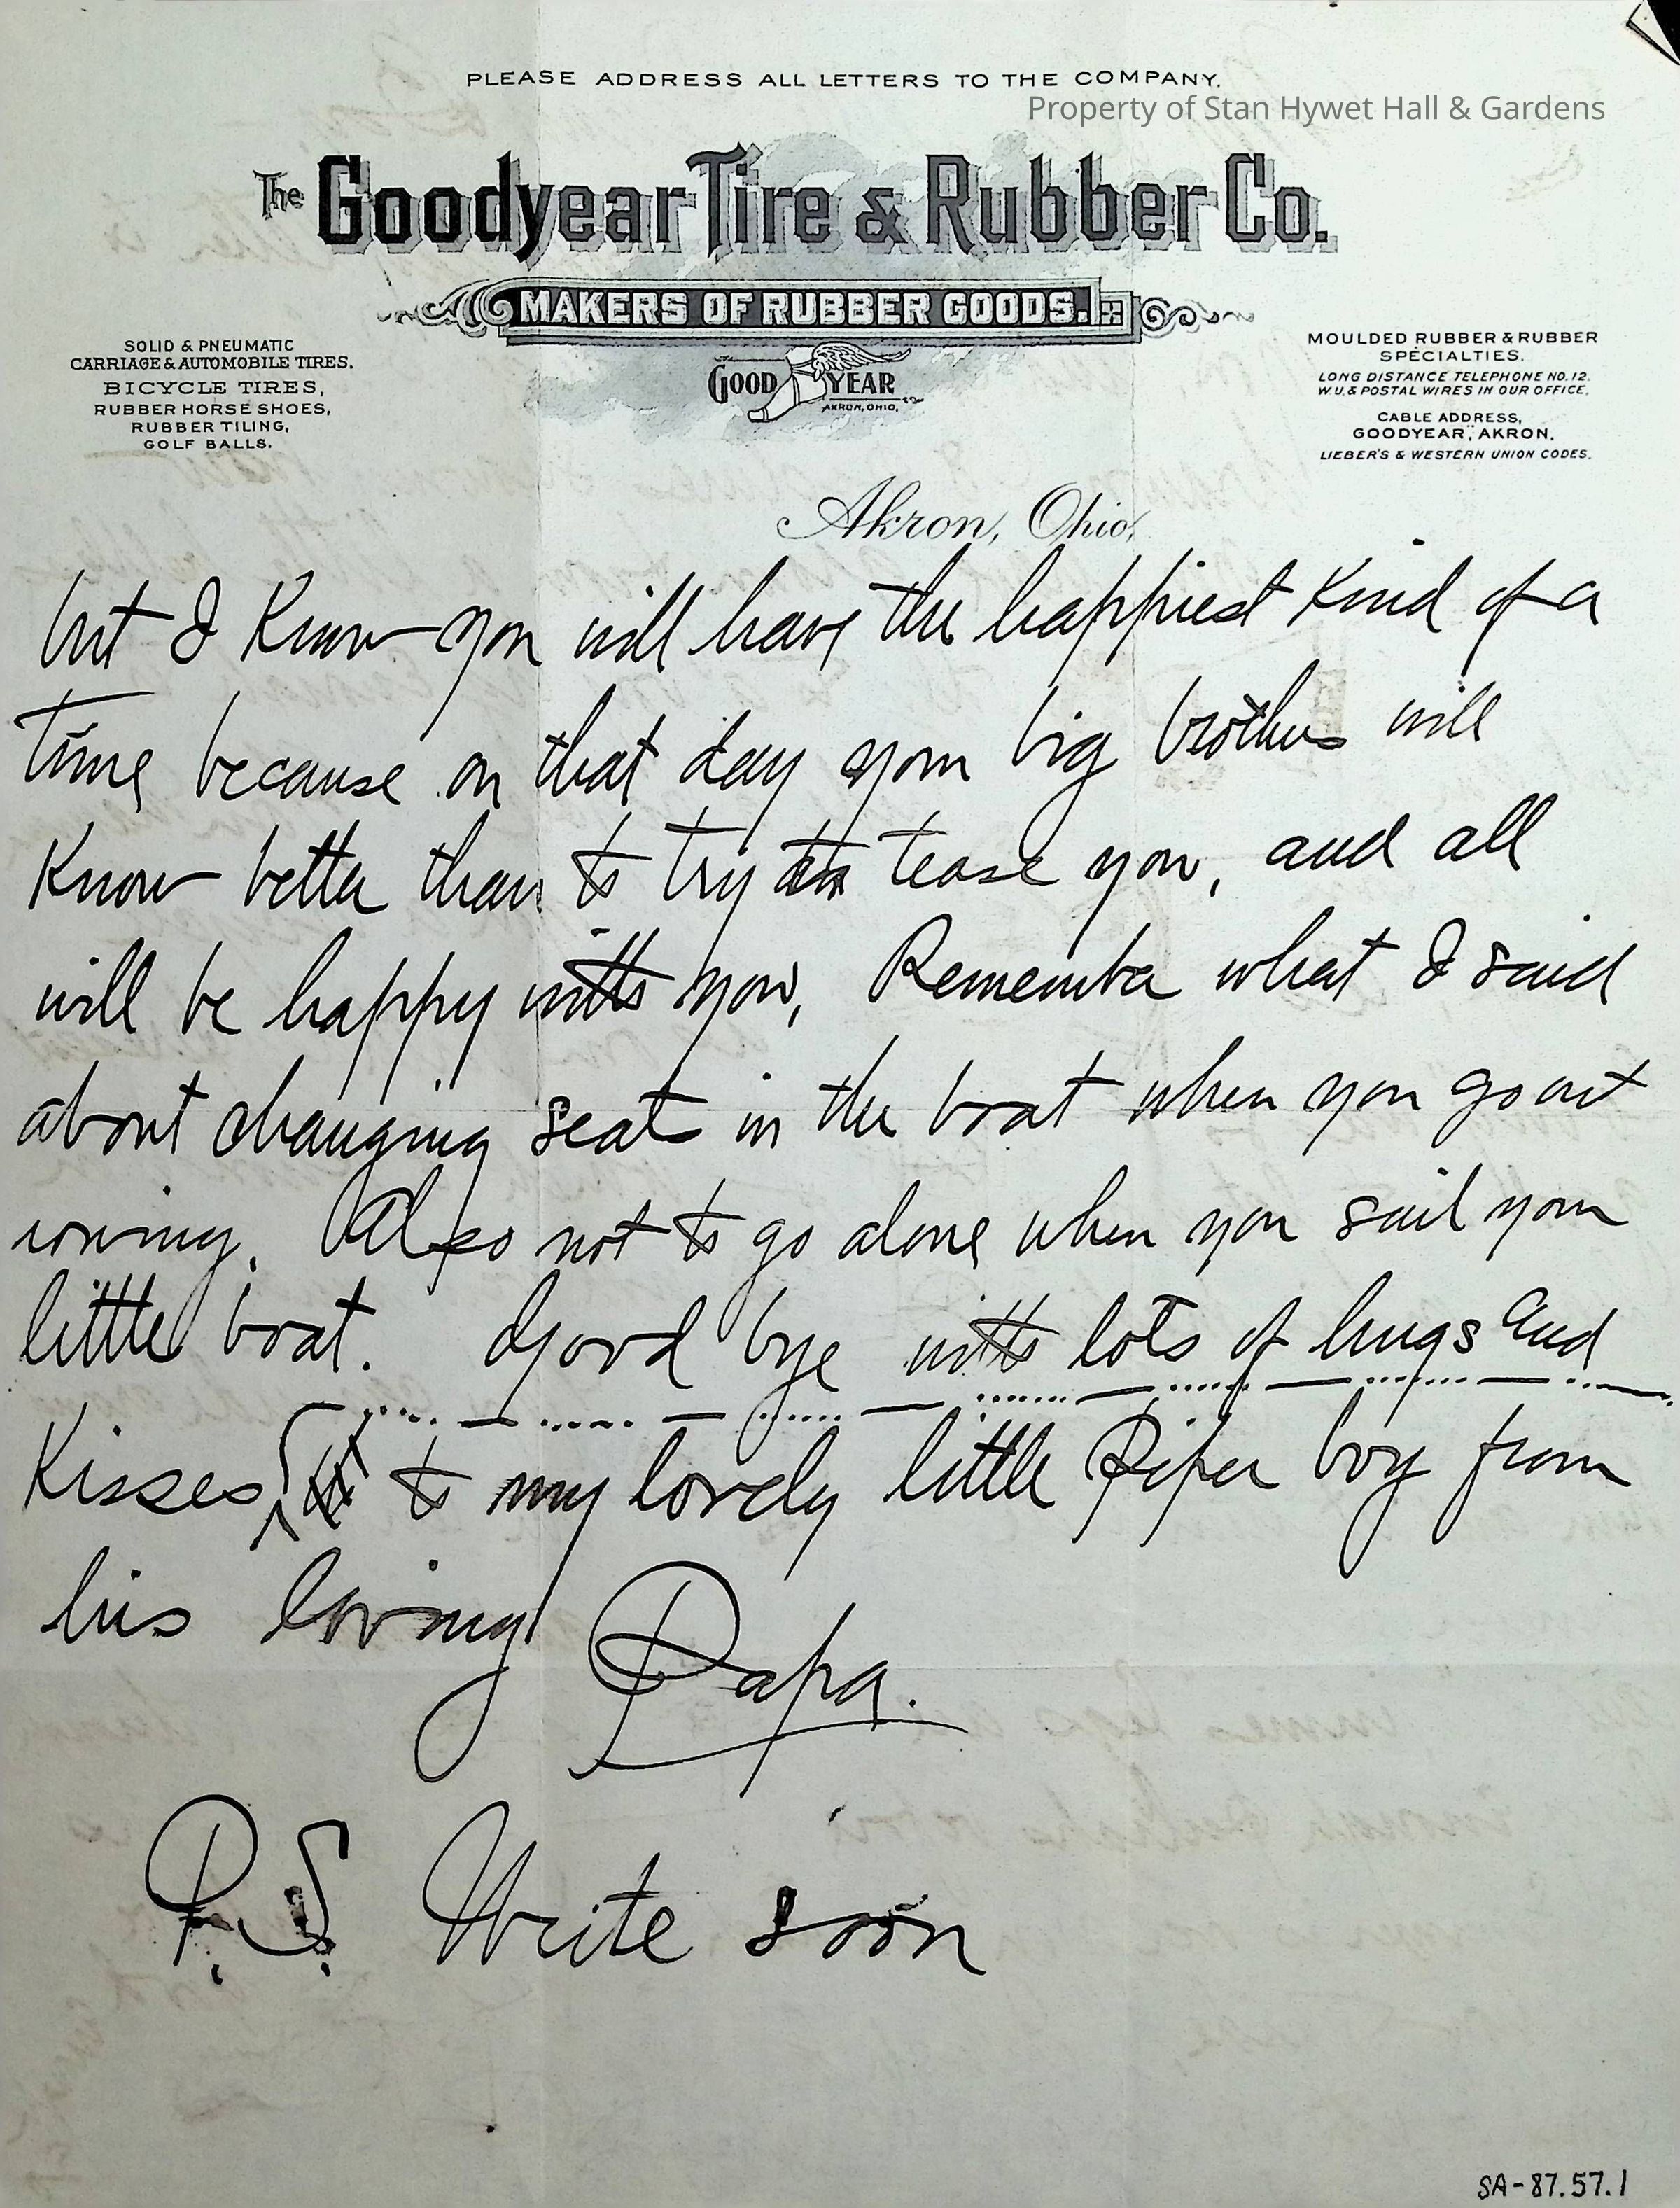 PLEASE ADDRESS ALL LETTERS TO THE COMPANY.
Property of Stan Hywet Hall & Gardens
The Goodyear Tire & Rubber Co.
MAKERS OF RUBBER GOODS.
GOOD YEAR
AKRON, OHIO.
SOLID & PNEUMATIC
CARRIAGE & AUTOMOBILE TIRES.
BICYCLE TIRES,
RUBBER HORSE SHOES,
RUBBER TILING,
GOLF BALLS.
MOULDED RUBBER & RUBBER
SPECIALTIES.
LONG DISTANCE TELEPHONE NO. 12.
W.U. & POSTAL WIRES IN OUR OFFICE.
CABLE ADDRESS,
GOODYEAR," AKRON.
LIEBER'S & WESTERN UNION CODES.
Akron, Ohio,
but I Know you will have the happiest Kind of a
time because on that day your big brothers will
Know better than to try to tease you, and all
will be happy with you, Remember what I said
about changing seats in the boat when you go out
rowing. Also not to go alone when you sail your
little boat. Good bye with lots of hugs and
Kisses, to my lovely little Piper boy from
his loving Papa.
P.S. Write soon
SA-87.57.1